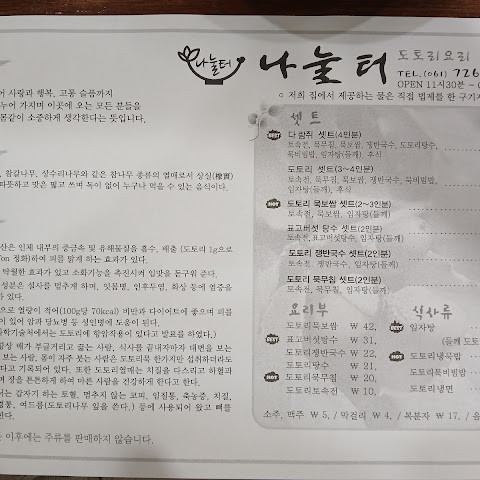 나눌터
나눌터
도토리요리
TEL.(061) 726
OPEN 11시30분 ~
○ 저희 집에서 제공하는 물은 직접 법제를 한 구기자
어 사랑과 행복, 고통 슬픔까지
누어 가지며 이곳에 오는 모든 분들을
몸같이 소중하게 생각한다는 뜻입니다.
, 참갈나무, 상수리나무와 같은 참나무 종류의 열매로서 상실(橡實)
따뜻하고 맛은 떫고 쓰며 독이 없어 누구나 먹을 수 있는 음식이다.
산은 인체 내부의 중금속 및 유해물질을 흡수, 배출 (도토리 1g으로
Ton 정화)하여 피를 맑게 하는 효과가 있다.
탁월한 효과가 있고 소화기능을 촉진시켜 입맛을 돋구워 준다.
성분은 설사를 멈추게 하며, 잇몸병, 인후두염, 화상 등에 염증을
가 있다.
으로 열량이 적어(100g당 70kcal) 비만과 다이어트에 좋으며 피를
이 있어 암과 당뇨병 등 성인병에 도움이 된다.
과학기술처에서는 도토리에 항암작용이 있다고 발표를 하였다.)
상 배가 부글거리고 끓는 사람, 식사를 끝내자마자 대변을 보는
보는 사람, 몸이 자주 붓는 사람은 도토리묵 한가지만 섭취하더라도
다고 기록되어 있다. 또한 도토리열매는 치질을 다스리고 하혈과
며 장을 튼튼하게 하여 마른 사람을 건강하게 한다고 한다.
서는 갑자기 하는 토혈, 멈추지 않는 코피, 임질통, 축농증, 치질,
통, 여드름(도토리나무 잎을 쓴다.) 등에 사용되어 왔고 뼈를
한다.
이후에는 주류를 판매하지 않습니다.
세트
BEST 다람쥐 셋트(4인분)
토속전, 묵무침, 묵보쌈, 쟁반국수, 도토리탕수,
묵비빔밥, 임자탕(들깨), 후식
도토리 셋트(3~4인분)
토속전, 묵무침, 묵보쌈, 쟁반국수, 묵비빔밥,
임자탕(들깨), 후식
HOT 도토리 묵보쌈 셋트(2~3인분)
토속전, 묵보쌈, 임자탕(들깨)
표고버섯 탕수 셋트(2인분)
토속전,표고버섯탕수, 임자탕(들깨)
도토리 쟁반국수 셋트(2인분)
토속전, 쟁반국수, 임자탕(들깨)
도토리 묵무침 셋트(2인분)
토속전, 묵무침, 임자탕(들깨)
요리부
도토리묵보쌈 ₩ 42,
BEST 표고버섯탕수 ₩ 31,
도토리쟁반국수 ₩ 22,
도토리탕수 ₩ 21,
HOT 도토리묵무침 ₩ 20,
도토리토속전 ₩ 10,
식사류
BEST 임자탕
(들깨 도토
HOT 도토리냉묵밥
도토리묵비빔밥
도토리냉면
소주, 맥주 ₩ 5, / 막걸리 ₩ 4, / 복분자 ₩ 17, / 음